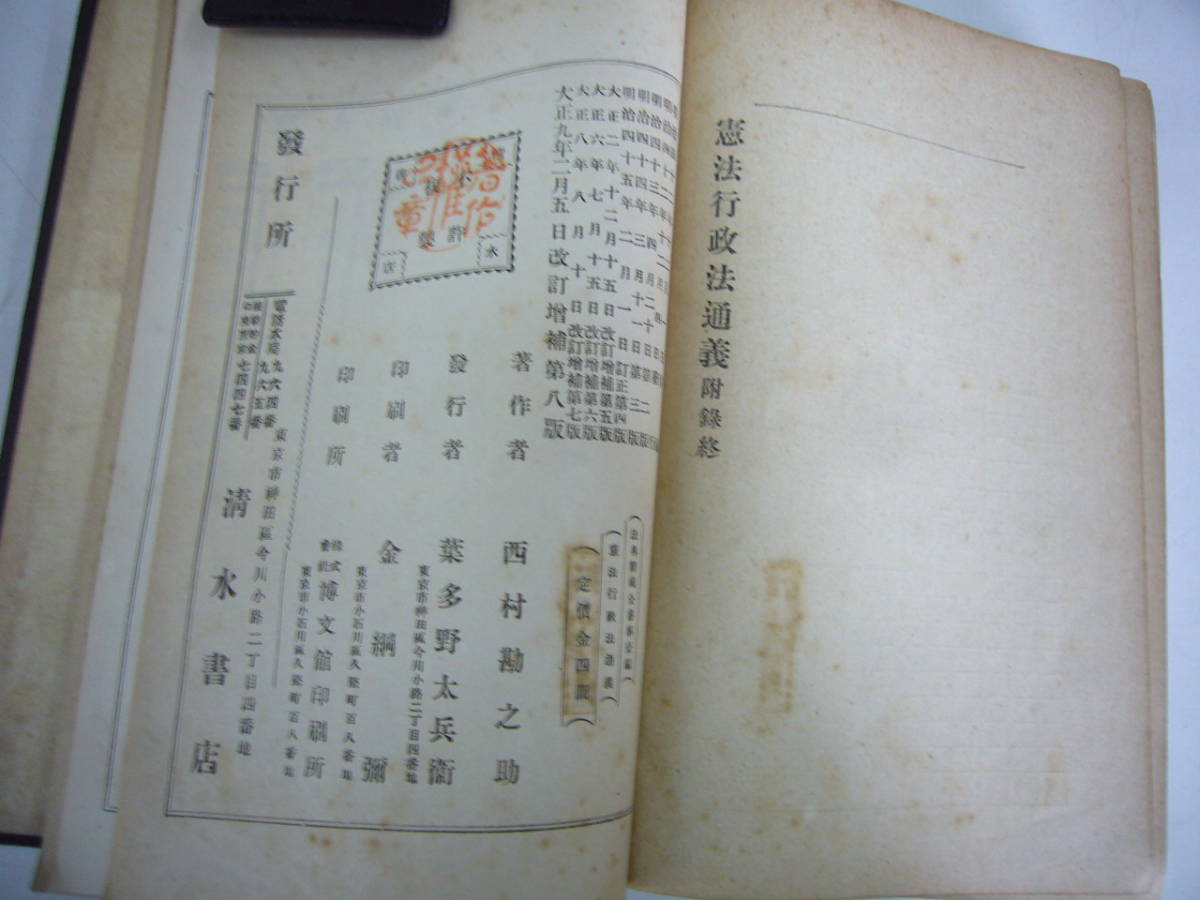 憲法行政法通義附錄終
明治四十三年四月二十日第二版
明治四十四年三月十一日第三版
明治四十五年二月一日訂正第四版
大正二年十二月十五日改訂增補第五版
大正六年七月十五日改訂增補第六版
大正八年八月十日改訂增補第七版
大正九年二月五日改訂增補第八版
憲法行政法通義
定價金四圓
著作者 西村勘之助
東京市神田區今川小路二丁目四番地
發行者 葉多野太兵衞
東京市小石川區久堅町百八番地
印刷者 金綱彌
東京市小石川區久堅町百八番地
印刷所 株式會社博文館印刷所
不許複製
東京市神田區今川小路二丁目四番地
發行所 淸水書店
電話本局九六四番
九六五番
七四四七番